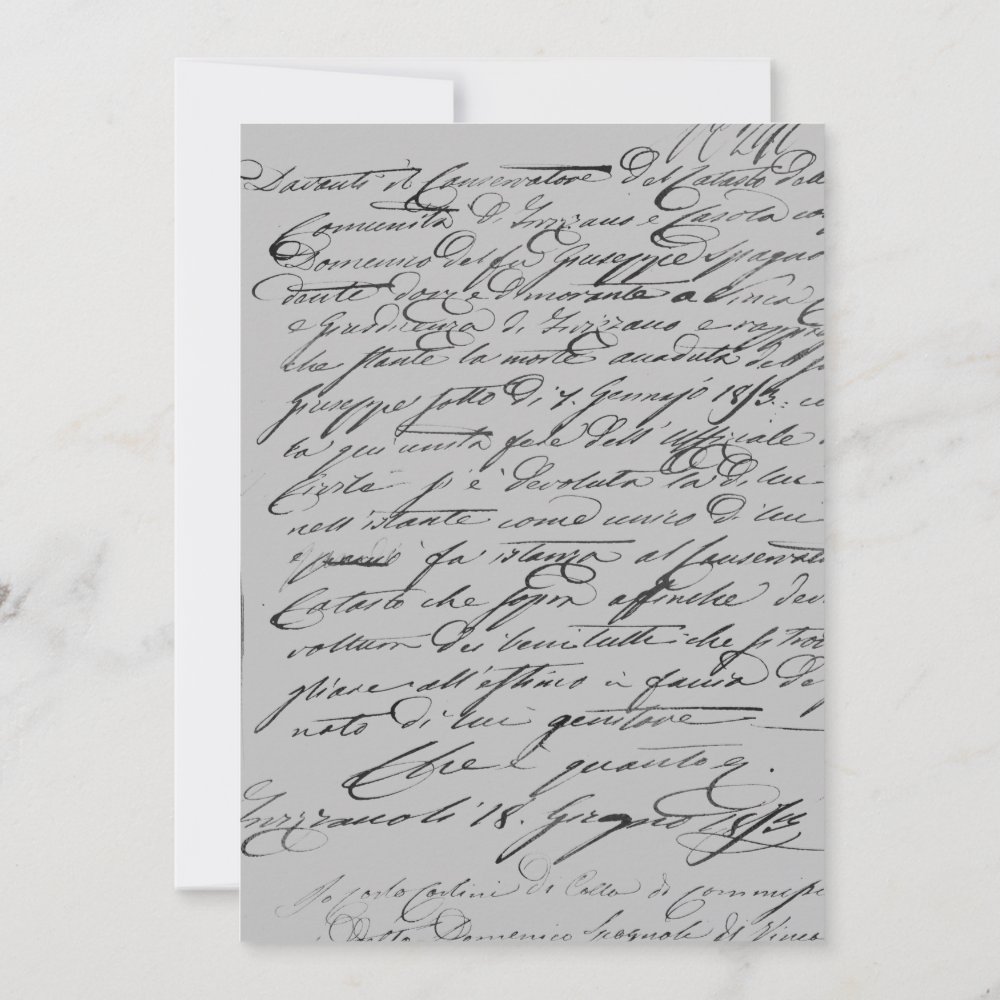 Davanti il Conservatore del Catasto della
Comunità di Fivizzano e Casola
Domenico del fu Giuseppe Spagno
dente dove e dimorante a Vinca
e Giusdicenza di Fivizzano e
che stante la morte accaduta del
Giuseppe sotto di 7. Gennajo 1853:
qui unita fede dell' Uffiziale
Civile si è devoluta la di lui
nell'istante come unico di lui
e fa istanza al Conservato
Catasto che sopra affinche
voltura dei beni tutti che si trov
gliare all'estimo in faccia del
nato di lui genitore
Che è quanto
Fivizzano li 18. Giugno 1853
Io Carlo di commissi
Detto Domenico Spagnoli di Vinca